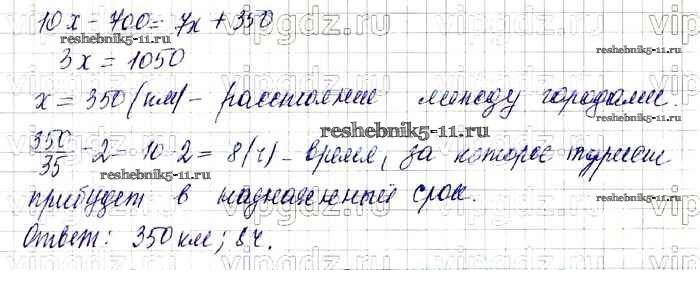 10x - 700 = 7x + 350
3x = 1050
x = 350 (км) - расстояние между городами.
350/35 - 2 = 10 - 2 = 8 (ч) - время, за которое турист
прибудет в назначенный срок.
Ответ: 350 км; 8 ч.
reshebnik5-11.ru
reshebnik5-11.ru
reshebnik5-11.ru
reshebnik5-11.ru
reshebnik5-11.ru
vipgdz.ru